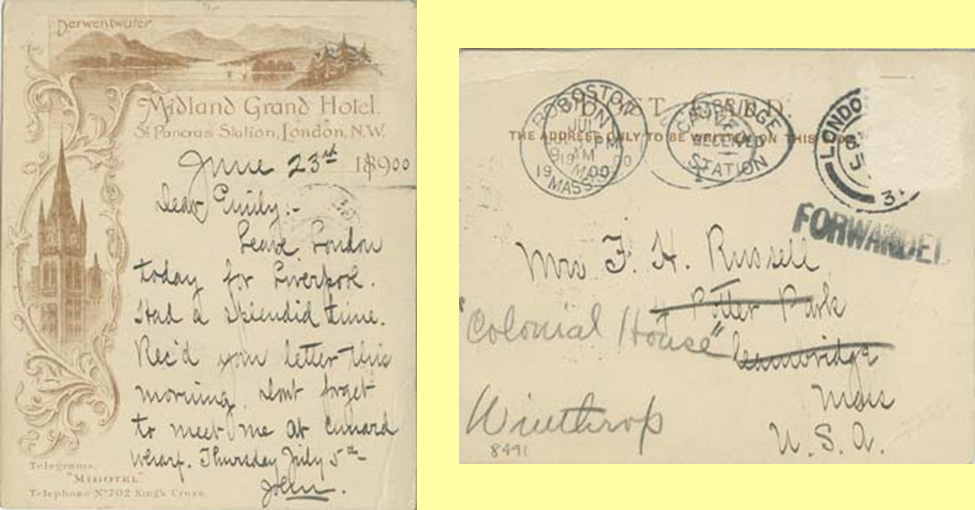 Derwentwater
Midland Grand Hotel.
St Pancras Station, London, N.W.
June 23rd 1900
Dear Emily:-
Leave London
today for Liverpool.
Had a splendid time.
Rec'd your letter this
morning. Dont forget
to meet me at Cunard
Wharf. Thursday July 5th-
John.
Telegrams,
"MIDOTEL"
Telephone No 702 King's Cross.
POST CARD.
THE ADDRESS ONLY TO BE WRITTEN ON THIS
BOSTON
MASS
CAMBRIDGE
RECEIVED
STATION
LONDO
FORWARDED
Mrs F. H. Russell
Potter Park
"Colonial House"
Cambridge
Winthrop
Mass
U.S.A.
8491